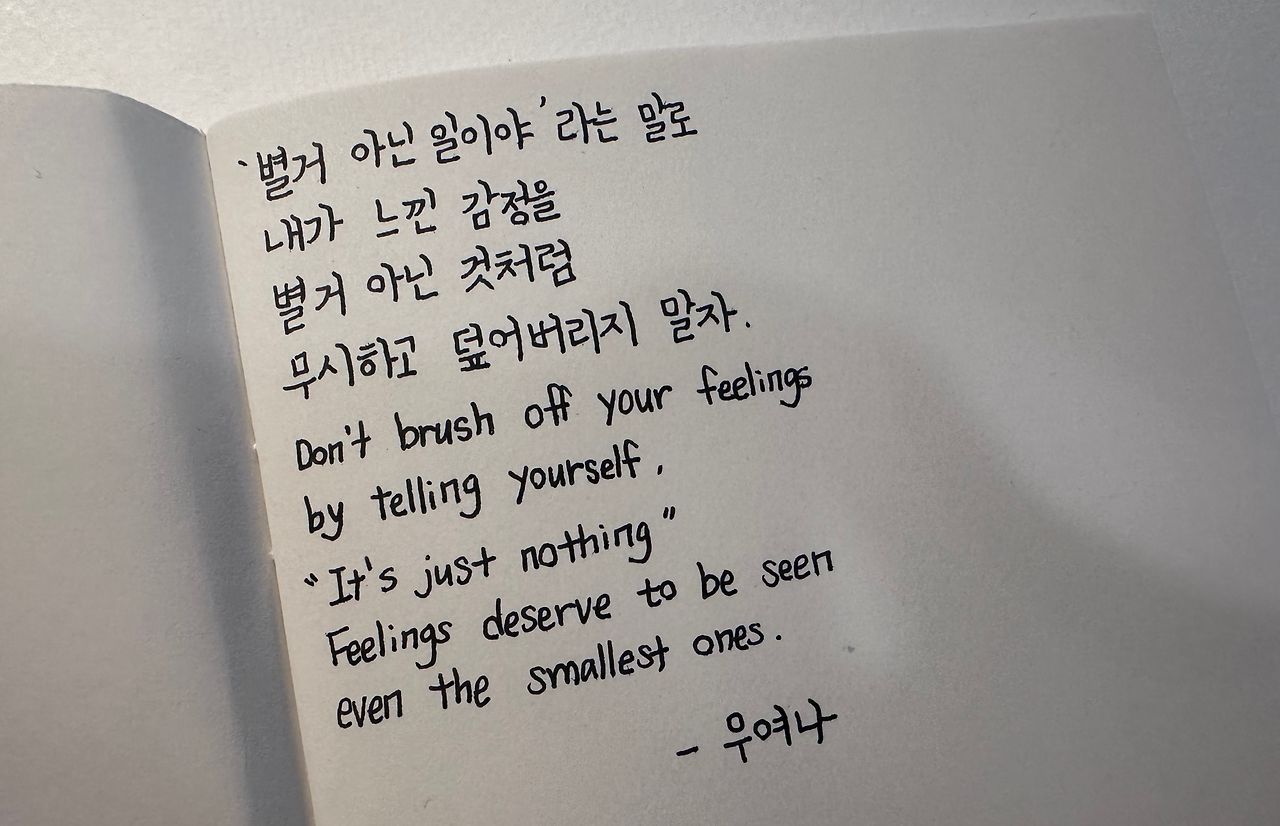 '별거 아닌 일이야'라는 말로
내가 느낀 감정을
별거 아닌 것처럼
무시하고 덮어버리지 말자.
Don't brush off your feelings
by telling yourself,
"It's just nothing"
Feelings deserve to be seen
even the smallest ones.
- 우여나